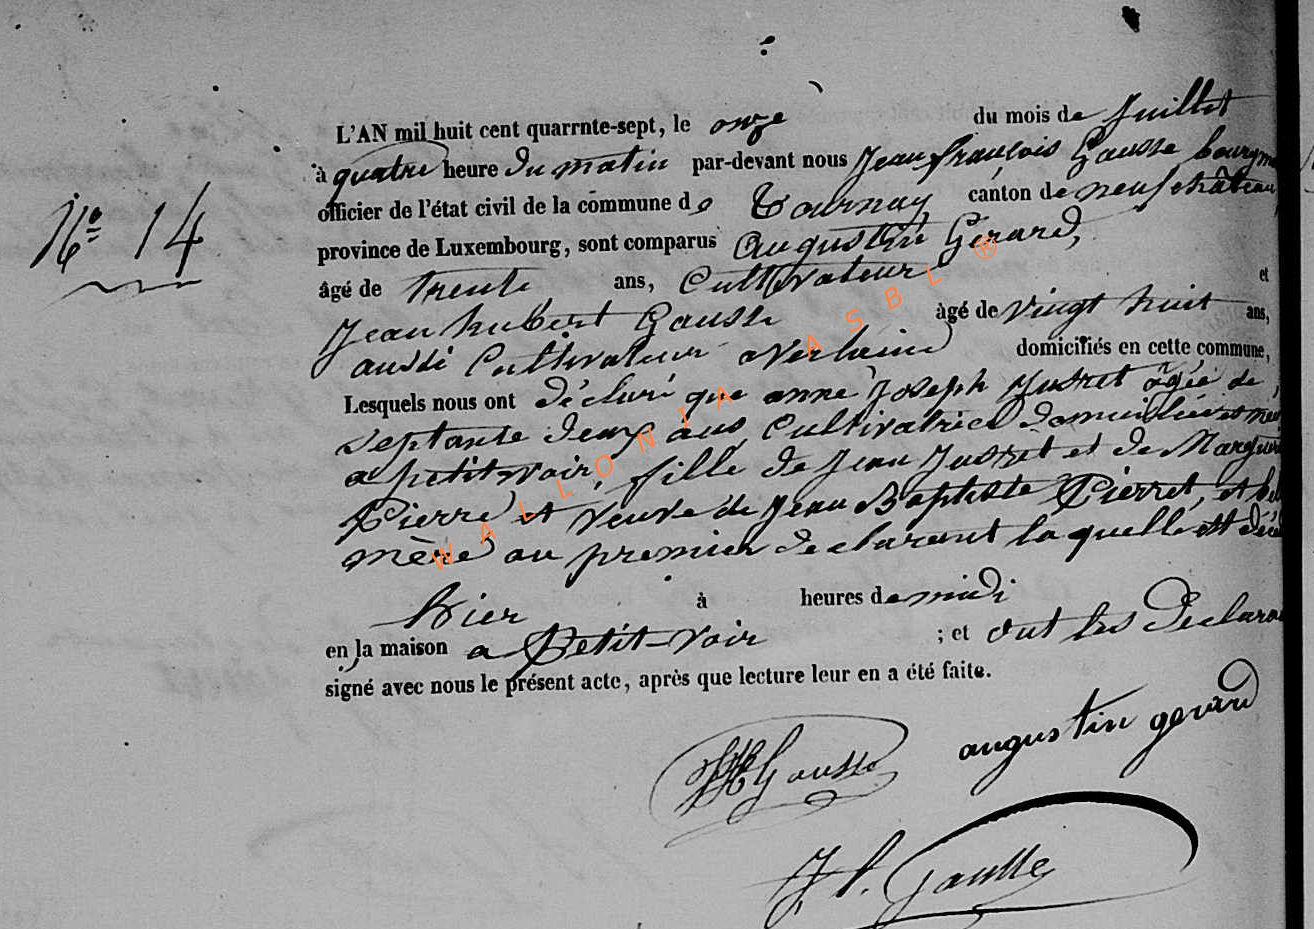 N° 14
L'AN mil huit cent quarrnte-sept, le onze du mois de Juillet
à quatre heure du matin par-devant nous Jean françois Gausse bourgm
officier de l'état civil de la commune de Tournay canton de neufchâteau,
province de Luxembourg, sont comparus Augustin Gerard,
âgé de trente ans, Cultivateur et
Jean hubert Gausse àgé de vingt huit ans,
aussi Cultivateur a Verlaine domiciliés en cette commune,
Lesquels nous ont déclaré que anne Joseph Jusret âgée de
septante deux ans, Cultivatrice
a petit-voir, fille de Jean Jusret et de Marguer
Pierre et veuve de Jean Baptiste Pierret, et bel
mère au premier declarant la quelle est décé
hier à heures de midi
en la maison a Petit-voir ; et ont les declaran
signé avec nous le présent acte, après que lecture leur en a été faite.
JH Gausse augustin gerard
J f. Gausse
WALLONIA ASBL ®